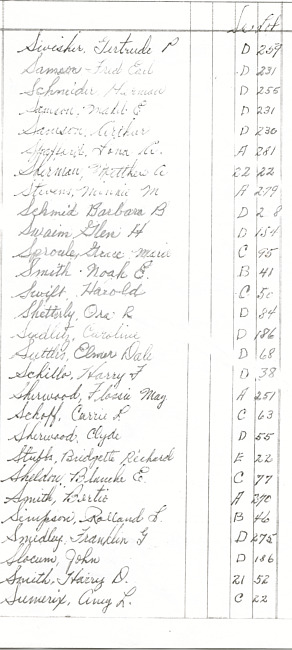 Swisher, Gertrude P D 259
Samson Fred Earl D 231
Schneider, Herman D 255
Samson, Mabl E D 231
Samson, Arthur D 230
Iona A 281
Sherman, Matthew A 22 22
Stevens, Minnie M A 279
Schmid Barbara B D 2 8
Swaim Glen H D 154
Sproule, Grace Marie C 95
Smith Noah E. B 41
Swift, Harold C 50
Shetterly, Ora R D 84
Caroline D 186
Suttles, Elmer Dale D 68
Schillo, Harry F D 38
Sherwood, Flosie May A 251
Schoff, Carrie L C 63
Sherwood, Clyde D 55
Stubbs, Bridgette Richard E 22
Sheldon, Blanche E. C 77
Smith, Bertie A 290
Simpson, Rolland L. B 46
Smidley, Franklin G D 275
Slocum, John D 186
Smith, Harry D. 21 52
Sumerix, Amy L. C 22